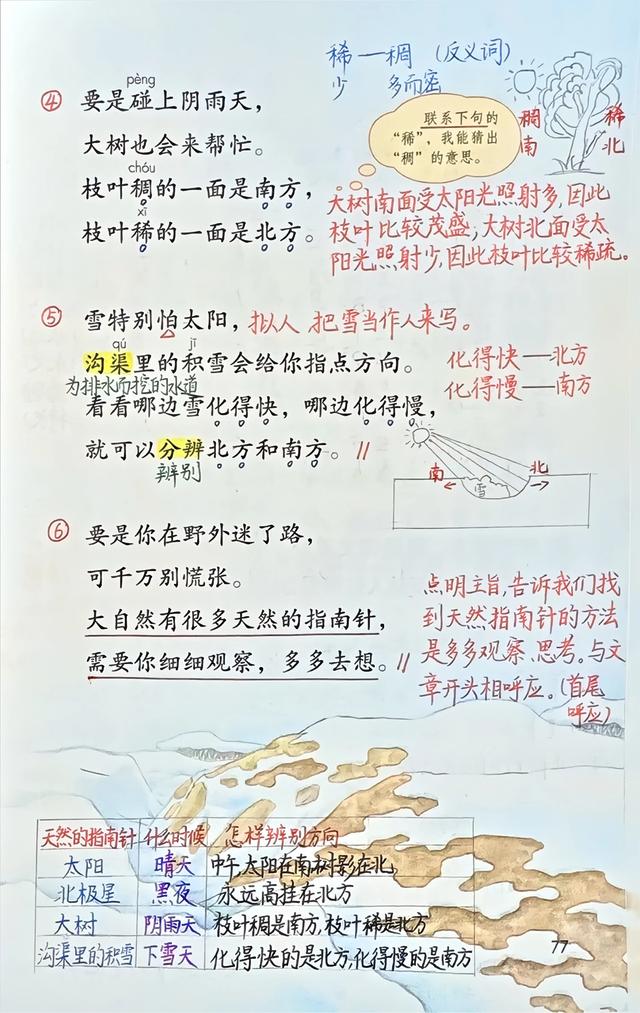 稀一稠（反义词）
少 多而密
pèng
④ 要是碰上阴雨天，
大树也会来帮忙。
chóu
枝叶稠的一面是南方，
xī
枝叶稀的一面是北方。
联系下句的
“稀”，我能猜出
“稠”的意思。
稠 稀
南 北
大树南面受太阳光照射多，因此
枝叶比较茂盛；大树北面受太
阳光照射少，因此枝叶比较稀疏。
⑤ 雪特别怕太阳，拟人 把雪当作人来写。
qú jī
沟渠里的积雪会给你指点方向。
为排水而挖的水道
看看哪边雪化得快，哪边化得慢，
就可以分辨北方和南方。//
辨别
化得快——北方
化得慢——南方
南 北
雪
⑥ 要是你在野外迷了路，
可千万别慌张。
大自然有很多天然的指南针，
需要你细细观察，多多去想。//
点明主旨，告诉我们找
到天然指南针的方法
是多多观察、思考。与文
章开头相呼应。（首尾
呼应）
天然的指南针 什么时候 怎样辨别方向
太阳 晴天 中午，太阳在南树影在北
北极星 黑夜 永远高挂在北方
大树 阴雨天 枝叶稠是南方，枝叶稀是北方
沟渠里的积雪 下雪天 化得快的是北方，化得慢的是南方
77